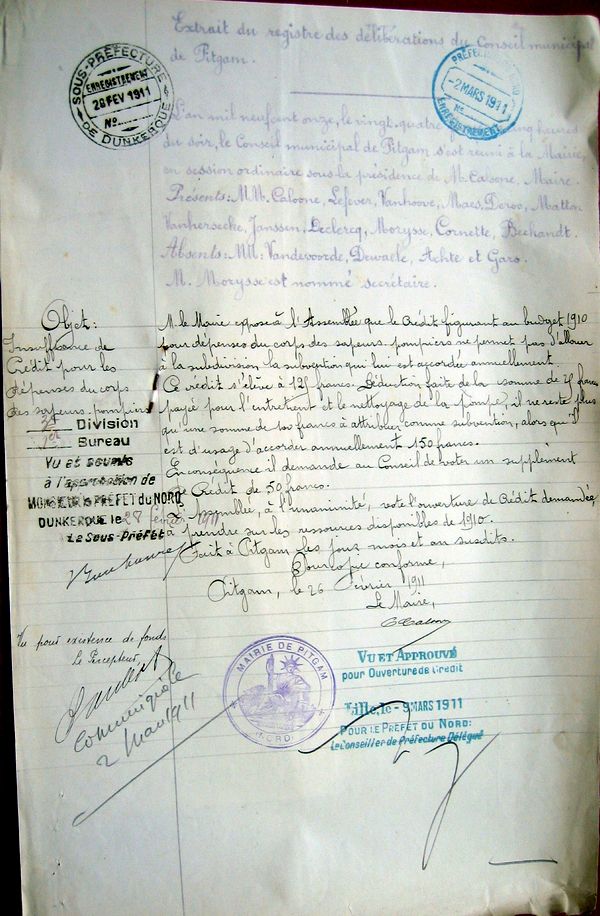 Extrait du registre des délibérations du Conseil municipal
de Pitgam.
SOUS-PRÉFECTURE
ENREGISTREMENT
28 FEV 1911
No
DE DUNKERQUE
2 MARS 1911
No
ENREGISTREMENT
L'an mil neuf cent onze, le vingt-quatre heures
du soir, le Conseil municipal de Pitgam s'est réuni à la Mairie,
en session ordinaire sous la présidence de M. Caloone, Maire.
Présents: M.M. Caloone, Lefever, Vanhoove, Maes, Deroo, Matton
Vanhersecke, Janssen, Declercq, Morysse, Cornette, Beckandt.
Absents: MM: Vandevoorde, Dewaele, Achte et Gars.
M. Morysse est nommé secrétaire.
Objet:
Insuffisance de
Crédit pour les
dépenses du corps
des sapeurs-pompiers
M. le Maire expose à l'Assemblée que le Crédit figurant au budget 1910
pour dépenses du corps des sapeurs-pompiers ne permet pas d'allouer
à la subdivision la subvention qui lui est accordée annuellement.
Ce crédit s'élève à 125 francs. Déduction faite de la somme de 25 francs
payée pour l'entretien et le nettoyage de la pompe, il ne reste plus
qu'une somme de 100 francs à attribuer comme subvention, alors qu'il
est d'usage d'accorder annuellement 150 francs.
En conséquence il demande au Conseil de voter un supplément
de Crédit de 50 francs.
L'Assemblée, à l'unanimité, vote l'ouverture de Crédit demandée,
à prendre sur les ressources disponibles de 1910.
Fait à Pitgam les jour, mois et an susdits.
Pour copie conforme,
Pitgam, le 26 Février 1911
Le Maire,
C Caloone
Division
Bureau
Vu et soumis
à l'approbation de
MONSIEUR le PRÉFET DU NORD
DUNKERQUE le 28 février 1911
Le Sous-Préfet
Vu pour existence de fonds
Le Percepteur,
Communiqué le
2 mars 1911
MAIRIE DE PITGAM
(NORD)
VU ET APPROUVÉ
pour Ouverture de Crédit
Lille, le - 9 MARS 1911
POUR LE PRÉFET DU NORD:
Le Conseiller de Préfecture Délégué